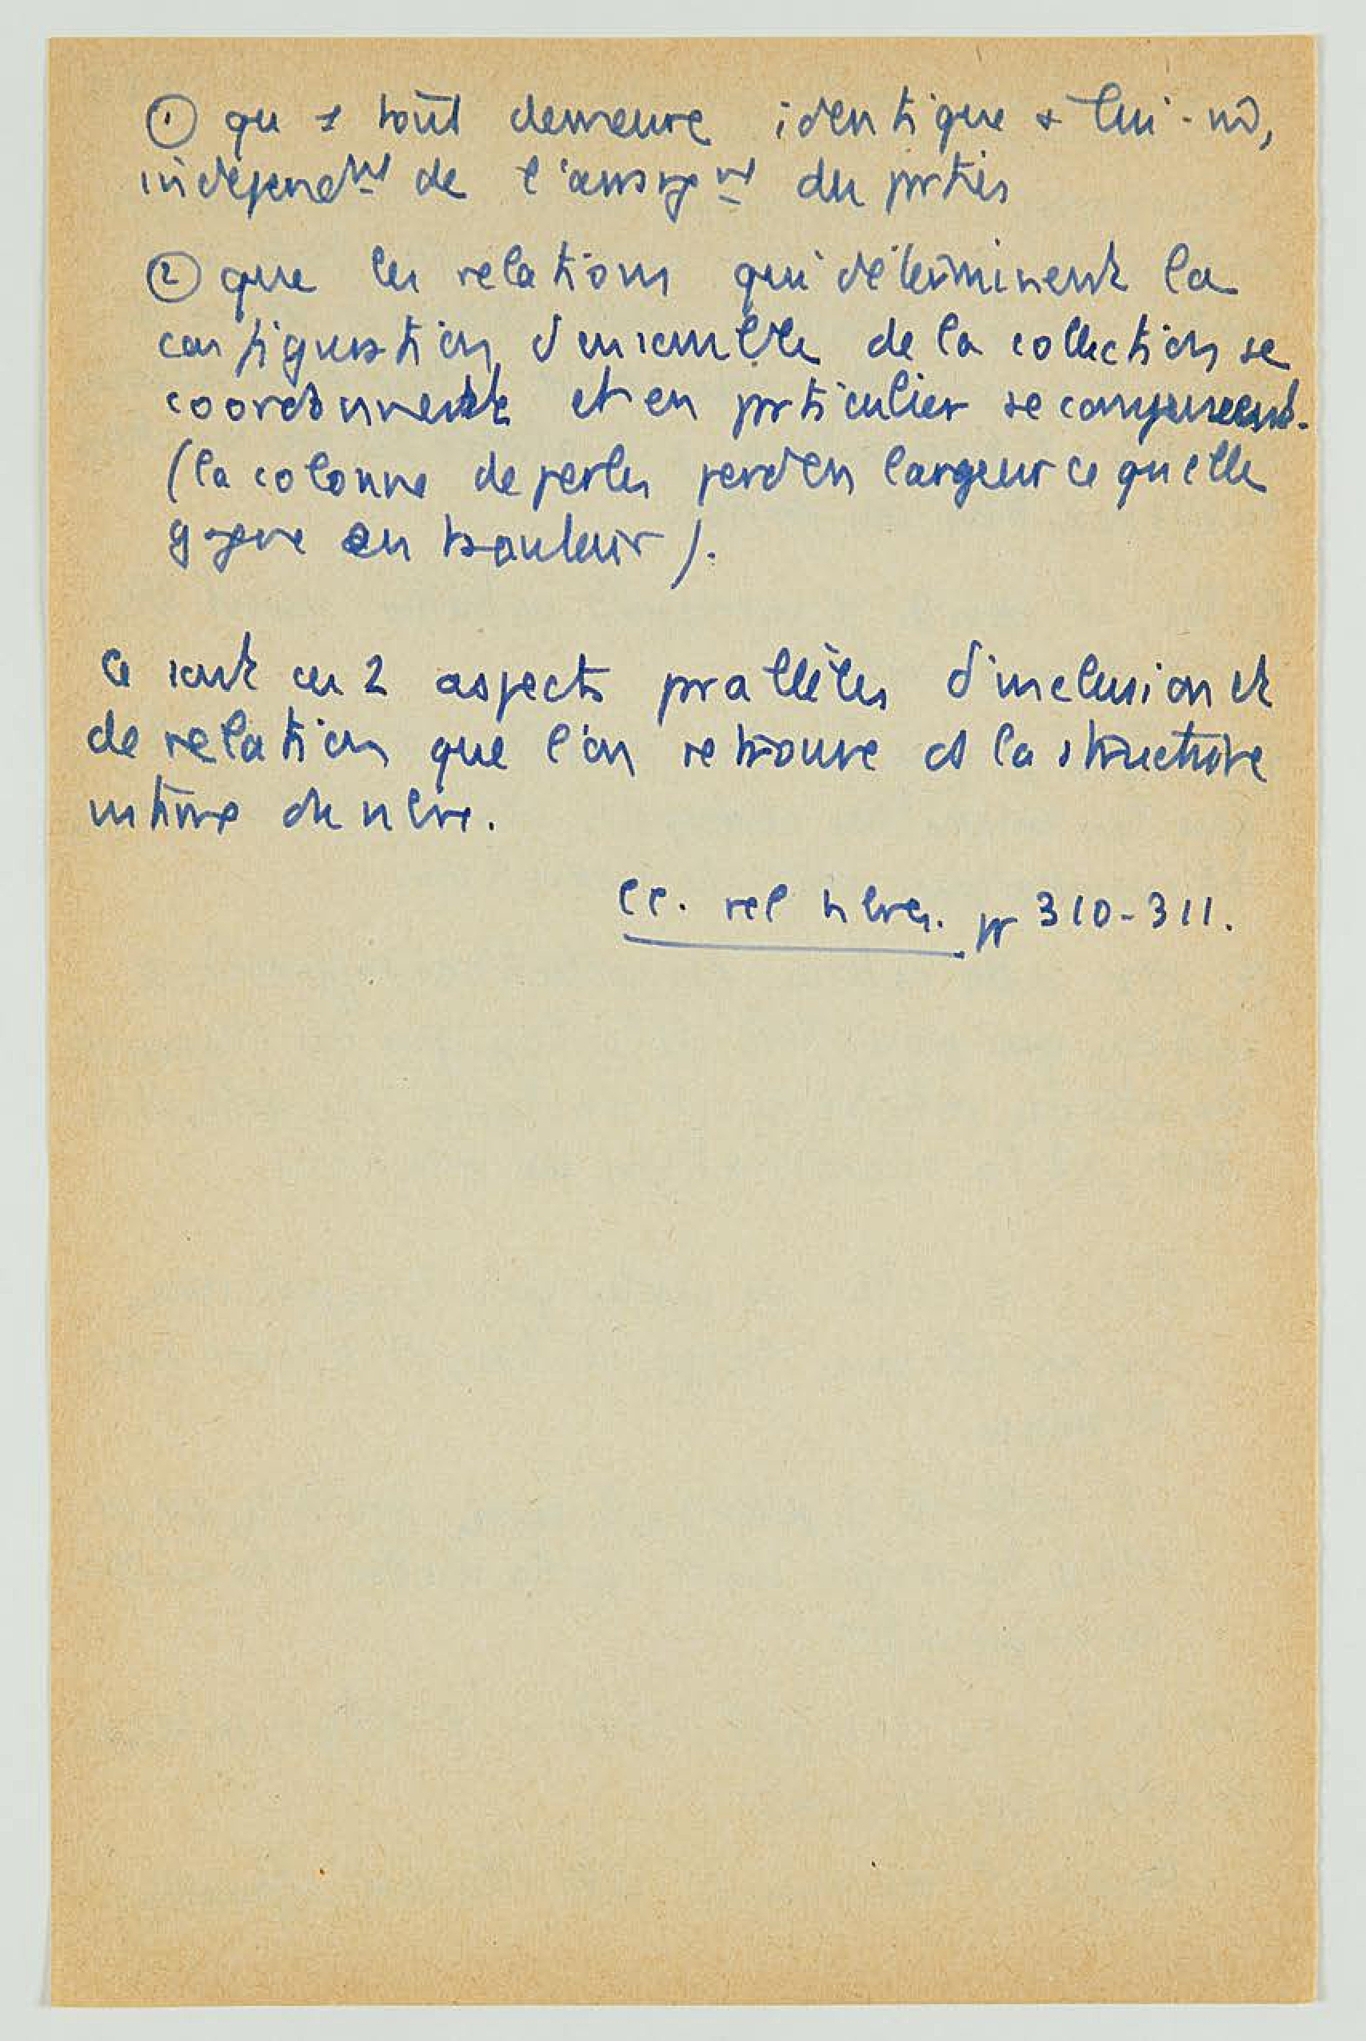 ① qu 1 tout demeure identique à lui-m̂,
independᵗ de l'arrangᵗ du prties
② que les relations qui déterminent la
configuration d'ensemble de la collection se
coordonnent et en prticulier se compensent.
(la colonne de perles perd en largeur ce qu'elle
gagne en hauteur).
Ce sont ces 2 aspects prallèles d'inclusion et
de relation que l'on retrouve ds la structure
intime du nbre.
rel nbres. pp 310-311.